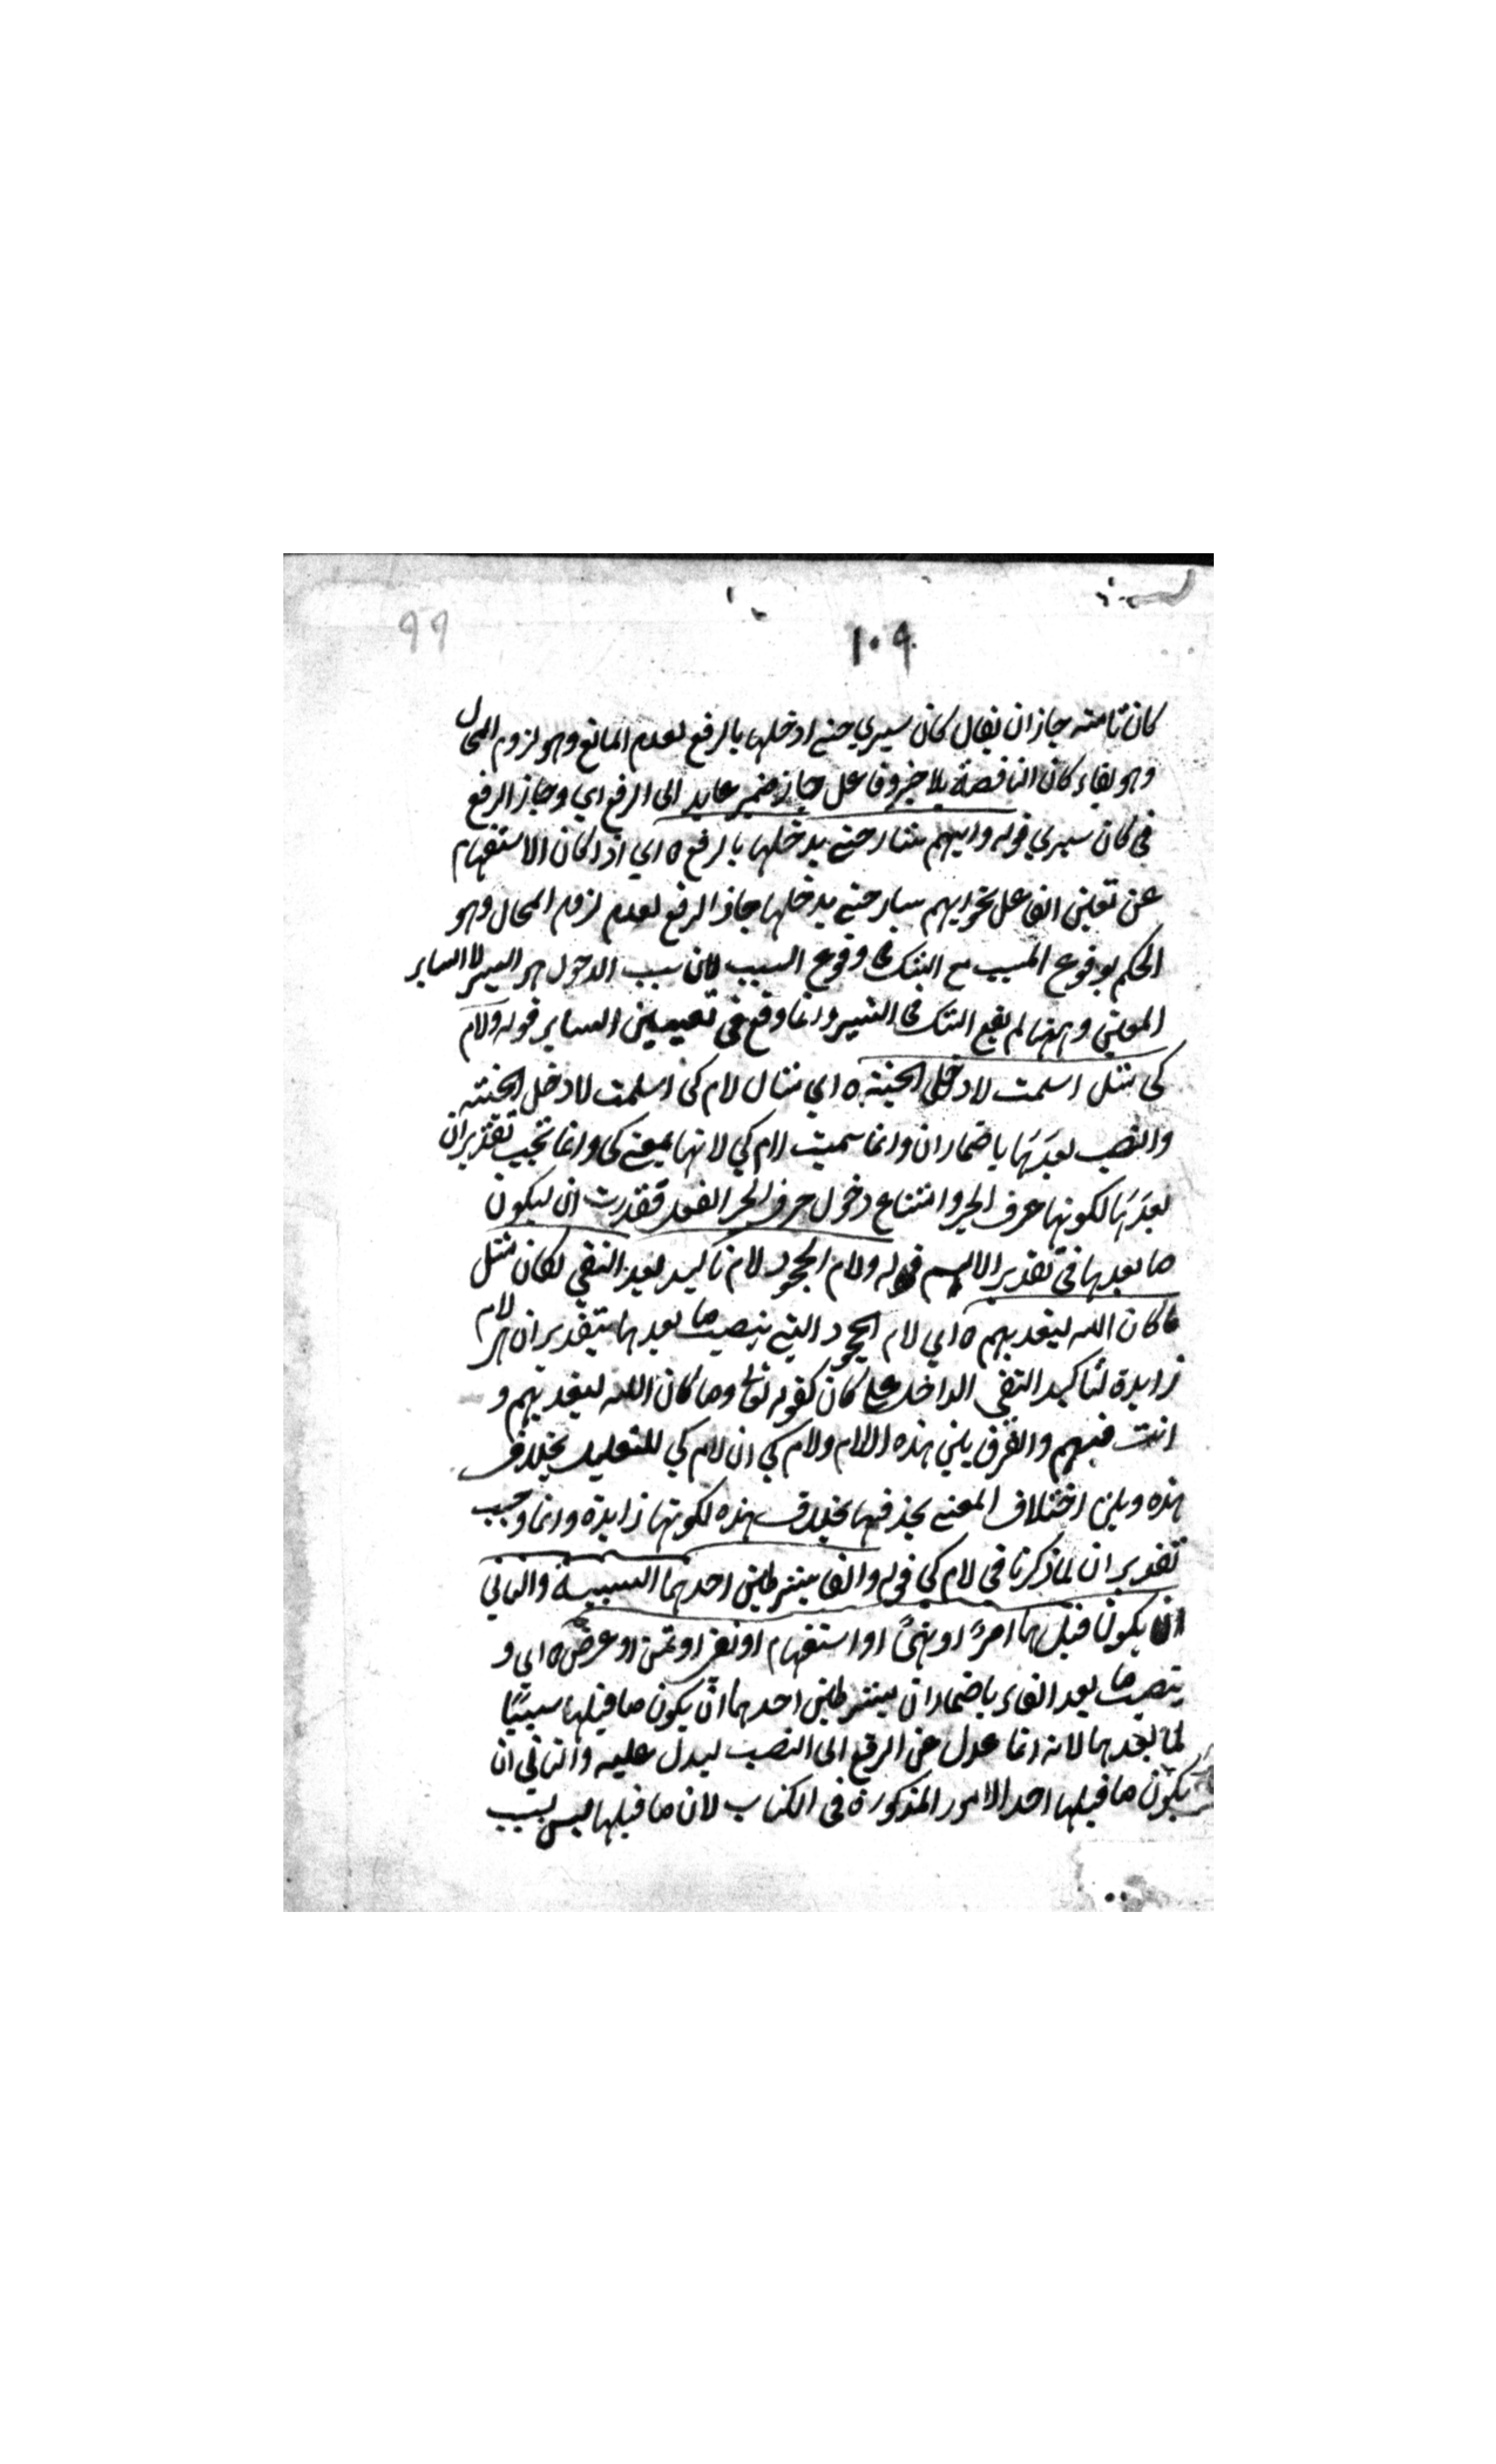 ٩٩
١٠٩
كان تامة جاز ان يقال كان سيري حتى ادخلها بالرفع لعدم المانع وهو لزوم المحال
وهو بقاء كان الناقصة بلا خبر وفاعل جاز ضمير عايد الى الرفع اي وجاز الرفع
في كان سيري قوله وايهم سار حتى يدخلها بالرفع ه اي اذا كان الاستفهام
عن تعيين الفاعل نحو ايهم سار حتى يدخلها جاز الرفع لعدم لزوم المحال وهو
الحكم بوقوع المسبب مع الشك في وقوع السبب لان سبب الدخول هو السير لا الساير
المعين وههنا لم يقع الشك في السير وانما وقع في تعيين الساير قوله ولام
كي مثل اسلمت لادخل الجنة ه اي مثال لام كي اسلمت لادخل الجنة
والنصب بعدها باضمار ان وانما سميت لام كي لانها بمعنى كي وانما تجب تقدير ان
بعدها لكونها حرف الجر وامتناع دخول حرف الجر الفعل فقدرت ان ليكون
ما بعدها في تقدير الاسم قوله ولام الجحود لام تاكيد بعد النفي لكان مثل
ما كان الله ليعذبهم ه اي لام الجحود التي ينصب ما بعدها بتقدير ان هو لام
زايدة لتاكيد النفي الداخل على كان كقوله تعالى وما كان الله ليعذبهم و
انت فيهم والفرق بين هذه اللام ولام كي ان لام كي للتعليل بخلاف
هذه ويلزم اختلاف المعنى بحذفها بخلاف هذه لكونها زايدة وانما وجب
تقدير ان لما ذكرنا في لام كي قوله والفا بشرطين احدهما السببية والثاني
ان يكون قبلها امرً او نهىً او استفهام او نفي او تمن او عرض ه اي و
ينصب ما بعد الفاء باضمار ان بشرطين احدهما ان يكون ما قبلها سببًا
لما بعدها لانه انما عدل عن الرفع الى النصب ليدل عليه والثاني ان
يكون ما قبلها احد الامور المذكورة في الكتاب لان ما قبلها ليس بسبب